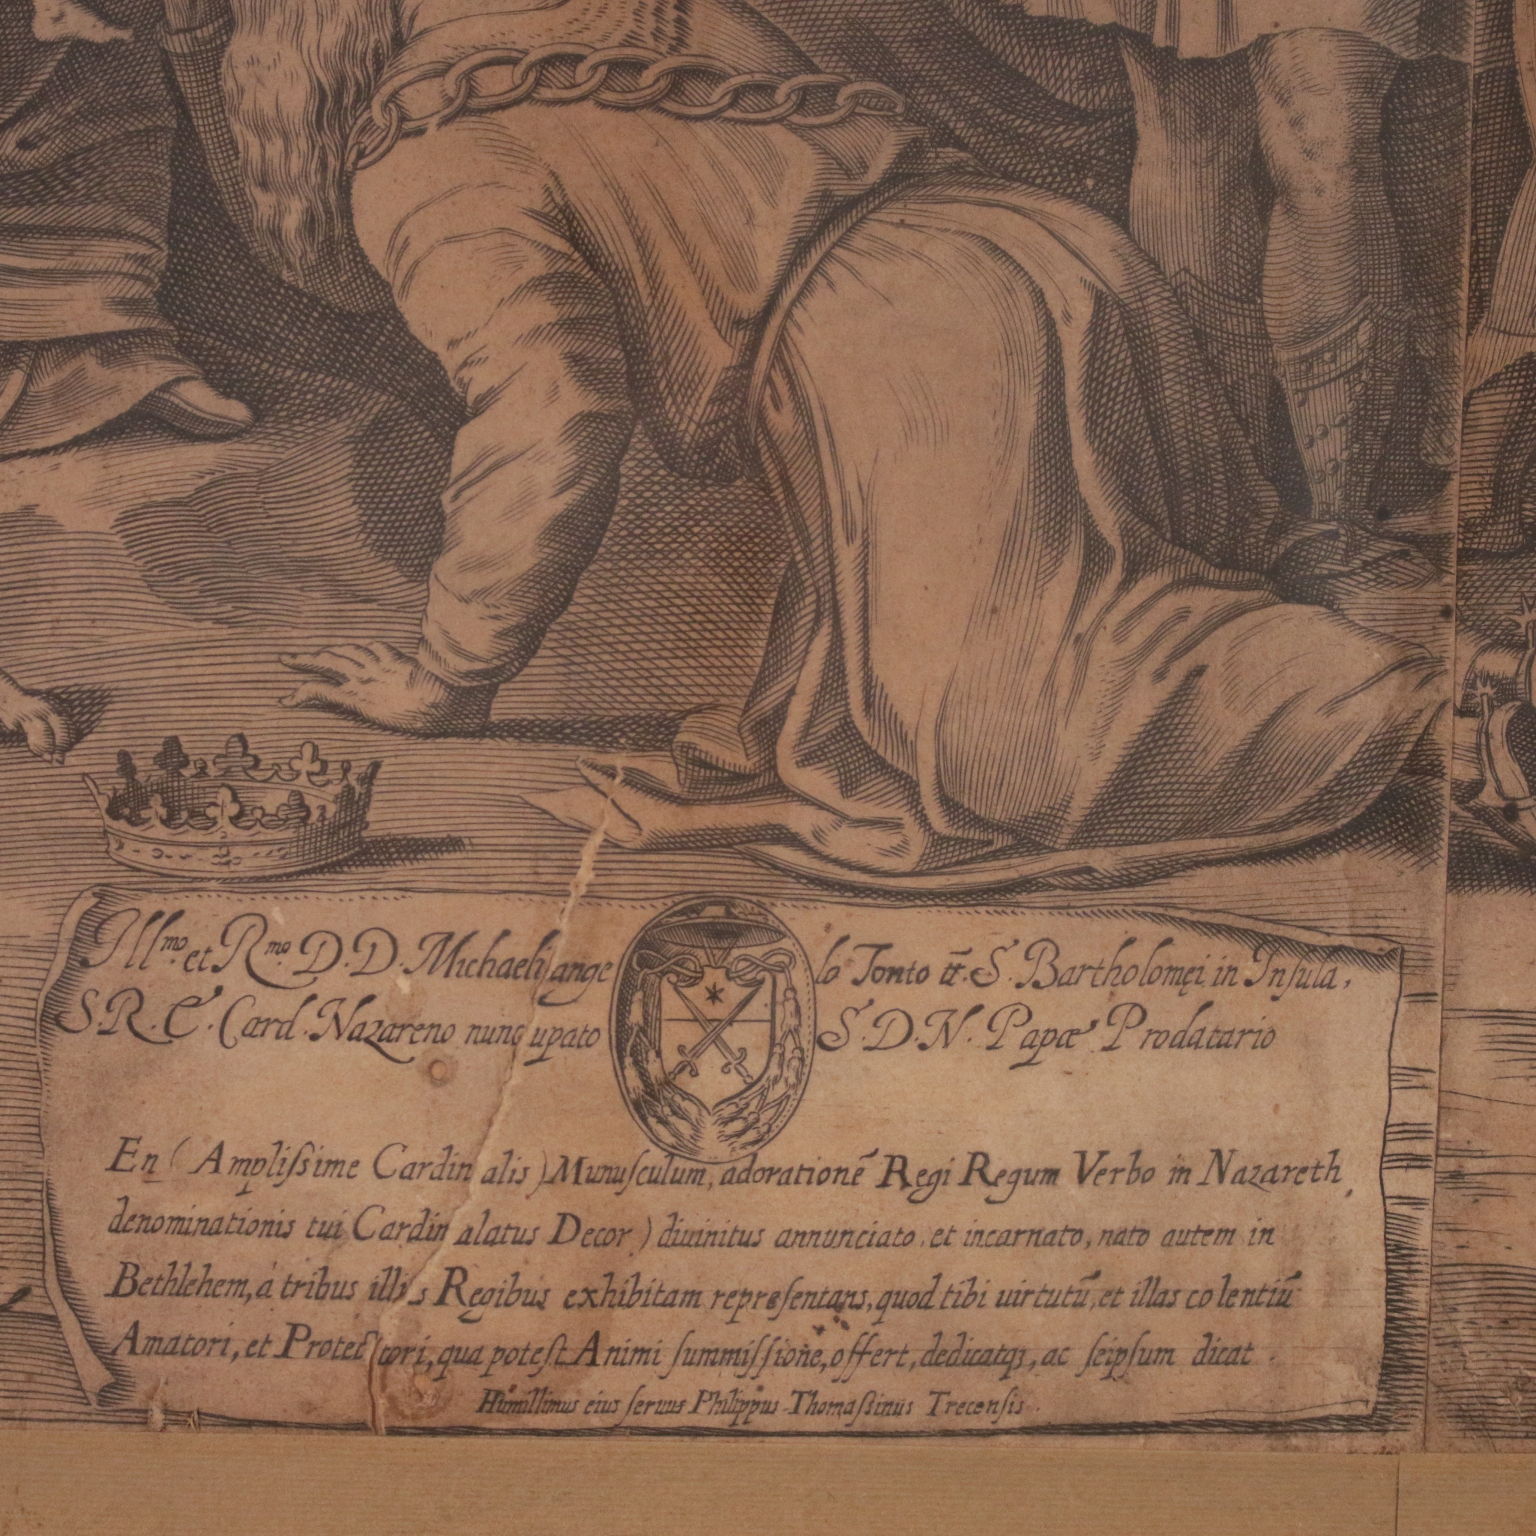 Ill.mo et R.mo D.D. Michaeliangelo Tonto tt. S. Bartholomęi in Insula,
S.R.E. Card. Nazareno nuncupato S.D.N. Papæ Prodatario
En (Amplissime Cardinalis) Munusculum, adorationē Regi Regum Verbo in Nazareth,
denominationis tui Cardinalatus Decor) diuinitus annunciato, et incarnato, nato autem in
Bethlehem, á tribus illis Regibus exhibitam representans, quod tibi uirtutū, et illas colentiū
Amatori, et Protectori, qua potest Animi summissione, offert, dedicatq3, ac seipsum dicat.
Humillimus eius seruus Philippus Thomassinus Trecensis.